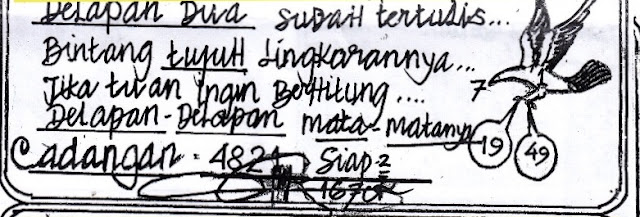 Delapan Dua sudah tertulis...
Bintang tujuh lingkarannya...
7
Jika tuan ingin Berhitung....
Delapan-Delapan mata-matanya
19 49
Cadangan = 4821 Siap²